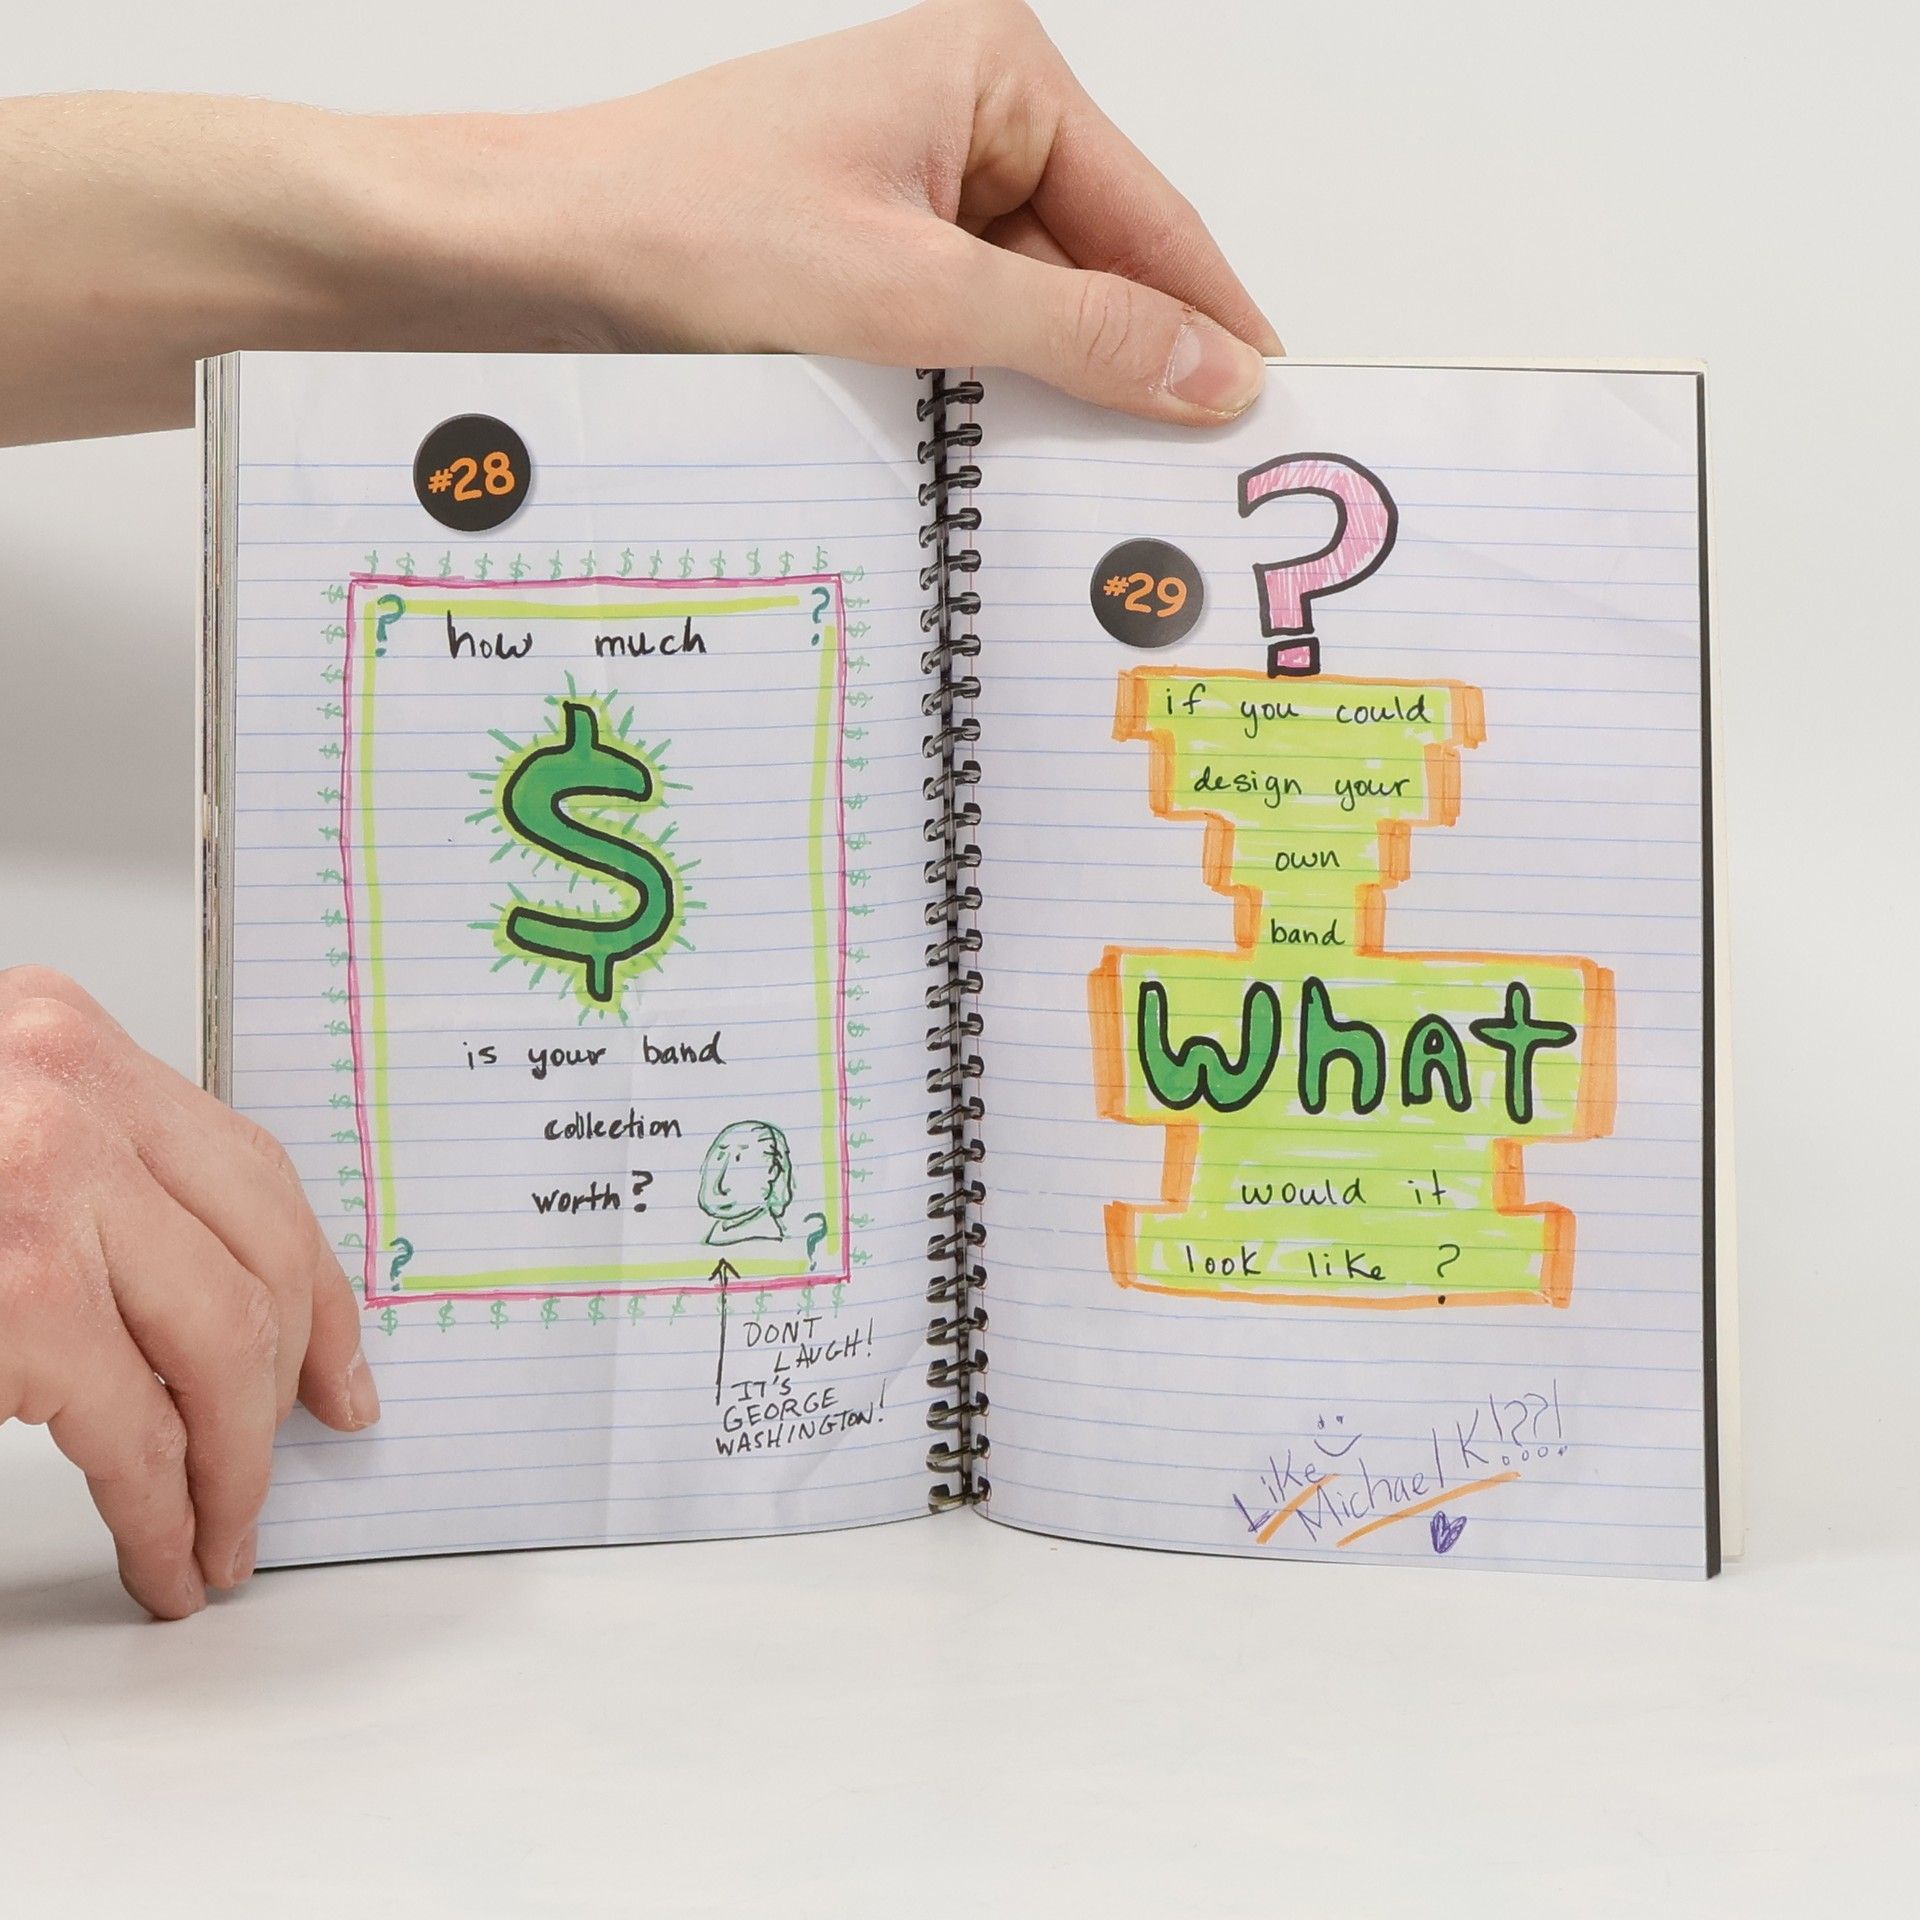 #28
? how much ?
$
is your band
collection
worth?
? ?
DON'T
LAUGH!
IT'S
GEORGE
WASHINGTON!
?
#29
if you could
design your
own
band
WhAT
would it
look like ?
Like
Michael K!??!